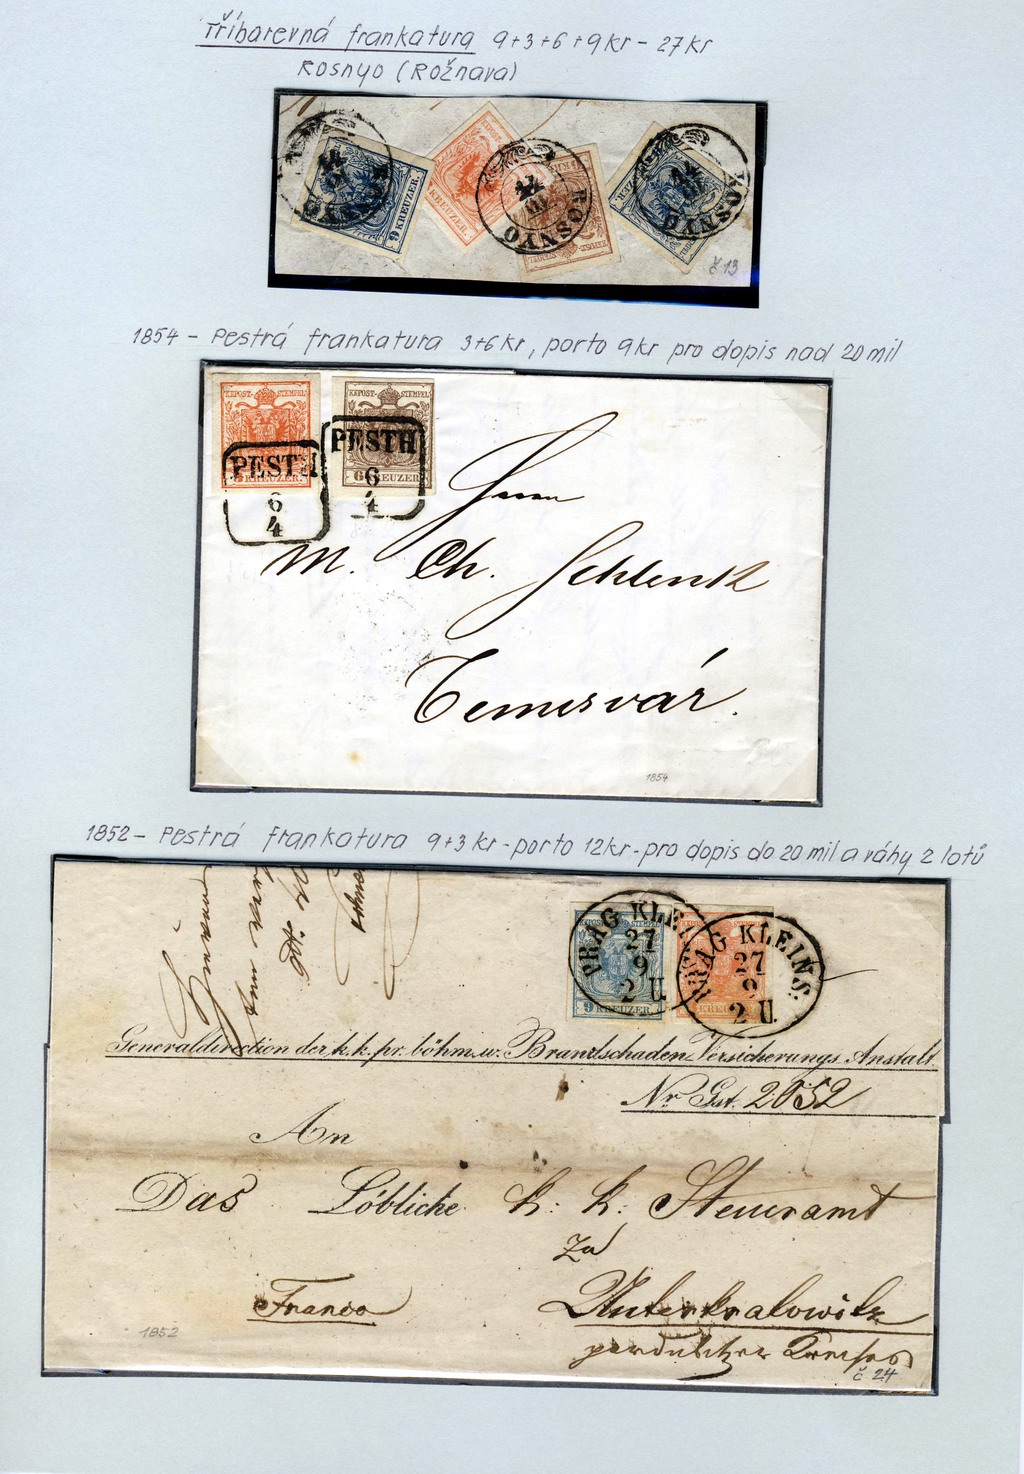 Tříbarevná frankatura 9+3+6+9kr - 27kr
Rosnyo (Rožnava)
9 KREUZER.
KREUZER.
ROSNYO
ROSNYO
č 13
1854 - Pestrá frankatura 3+6kr, porto 9kr pro dopis nad 20 mil
KKPOST-STEMPEL
KKPOST-STEMPEL
PESTH
6
4
PESTH
6
4
6 KREUZER.
Herrn
M. Ch. Schlenk
Temesvár.
1854
1852 - Pestrá frankatura 9+3 kr - porto 12kr - pro dopis do 20 mil a váhy 2 lotů
PRAG KLEI
27
9
2 U.
PRAG KLEINS.
27
9
2 U.
9 KREUZER
KREUZER
Generaldirection der k. k. pr. böhm. w. Brandschaden Versicherungs Anstalt.
Nr. Gst. 2052
An
Das Löbliche k: k: Steueramt
zu
Franco
Unterkralowitz
1852
č 24